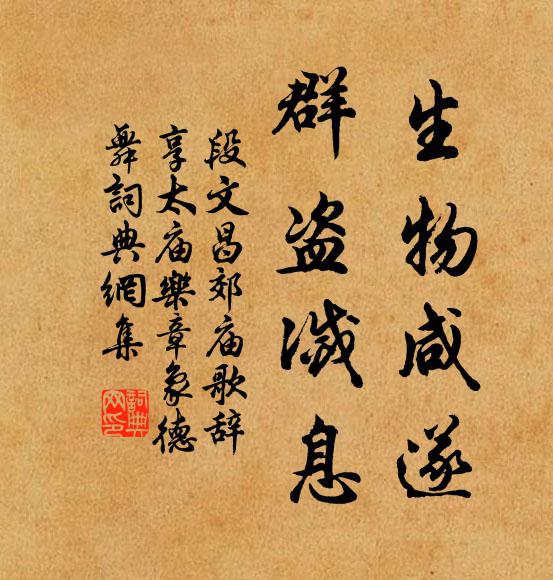 生物咸遂
群盗滅息
段文昌郊庙歌辞
享太庙樂章象德
舞詞典網集
詞典
网印